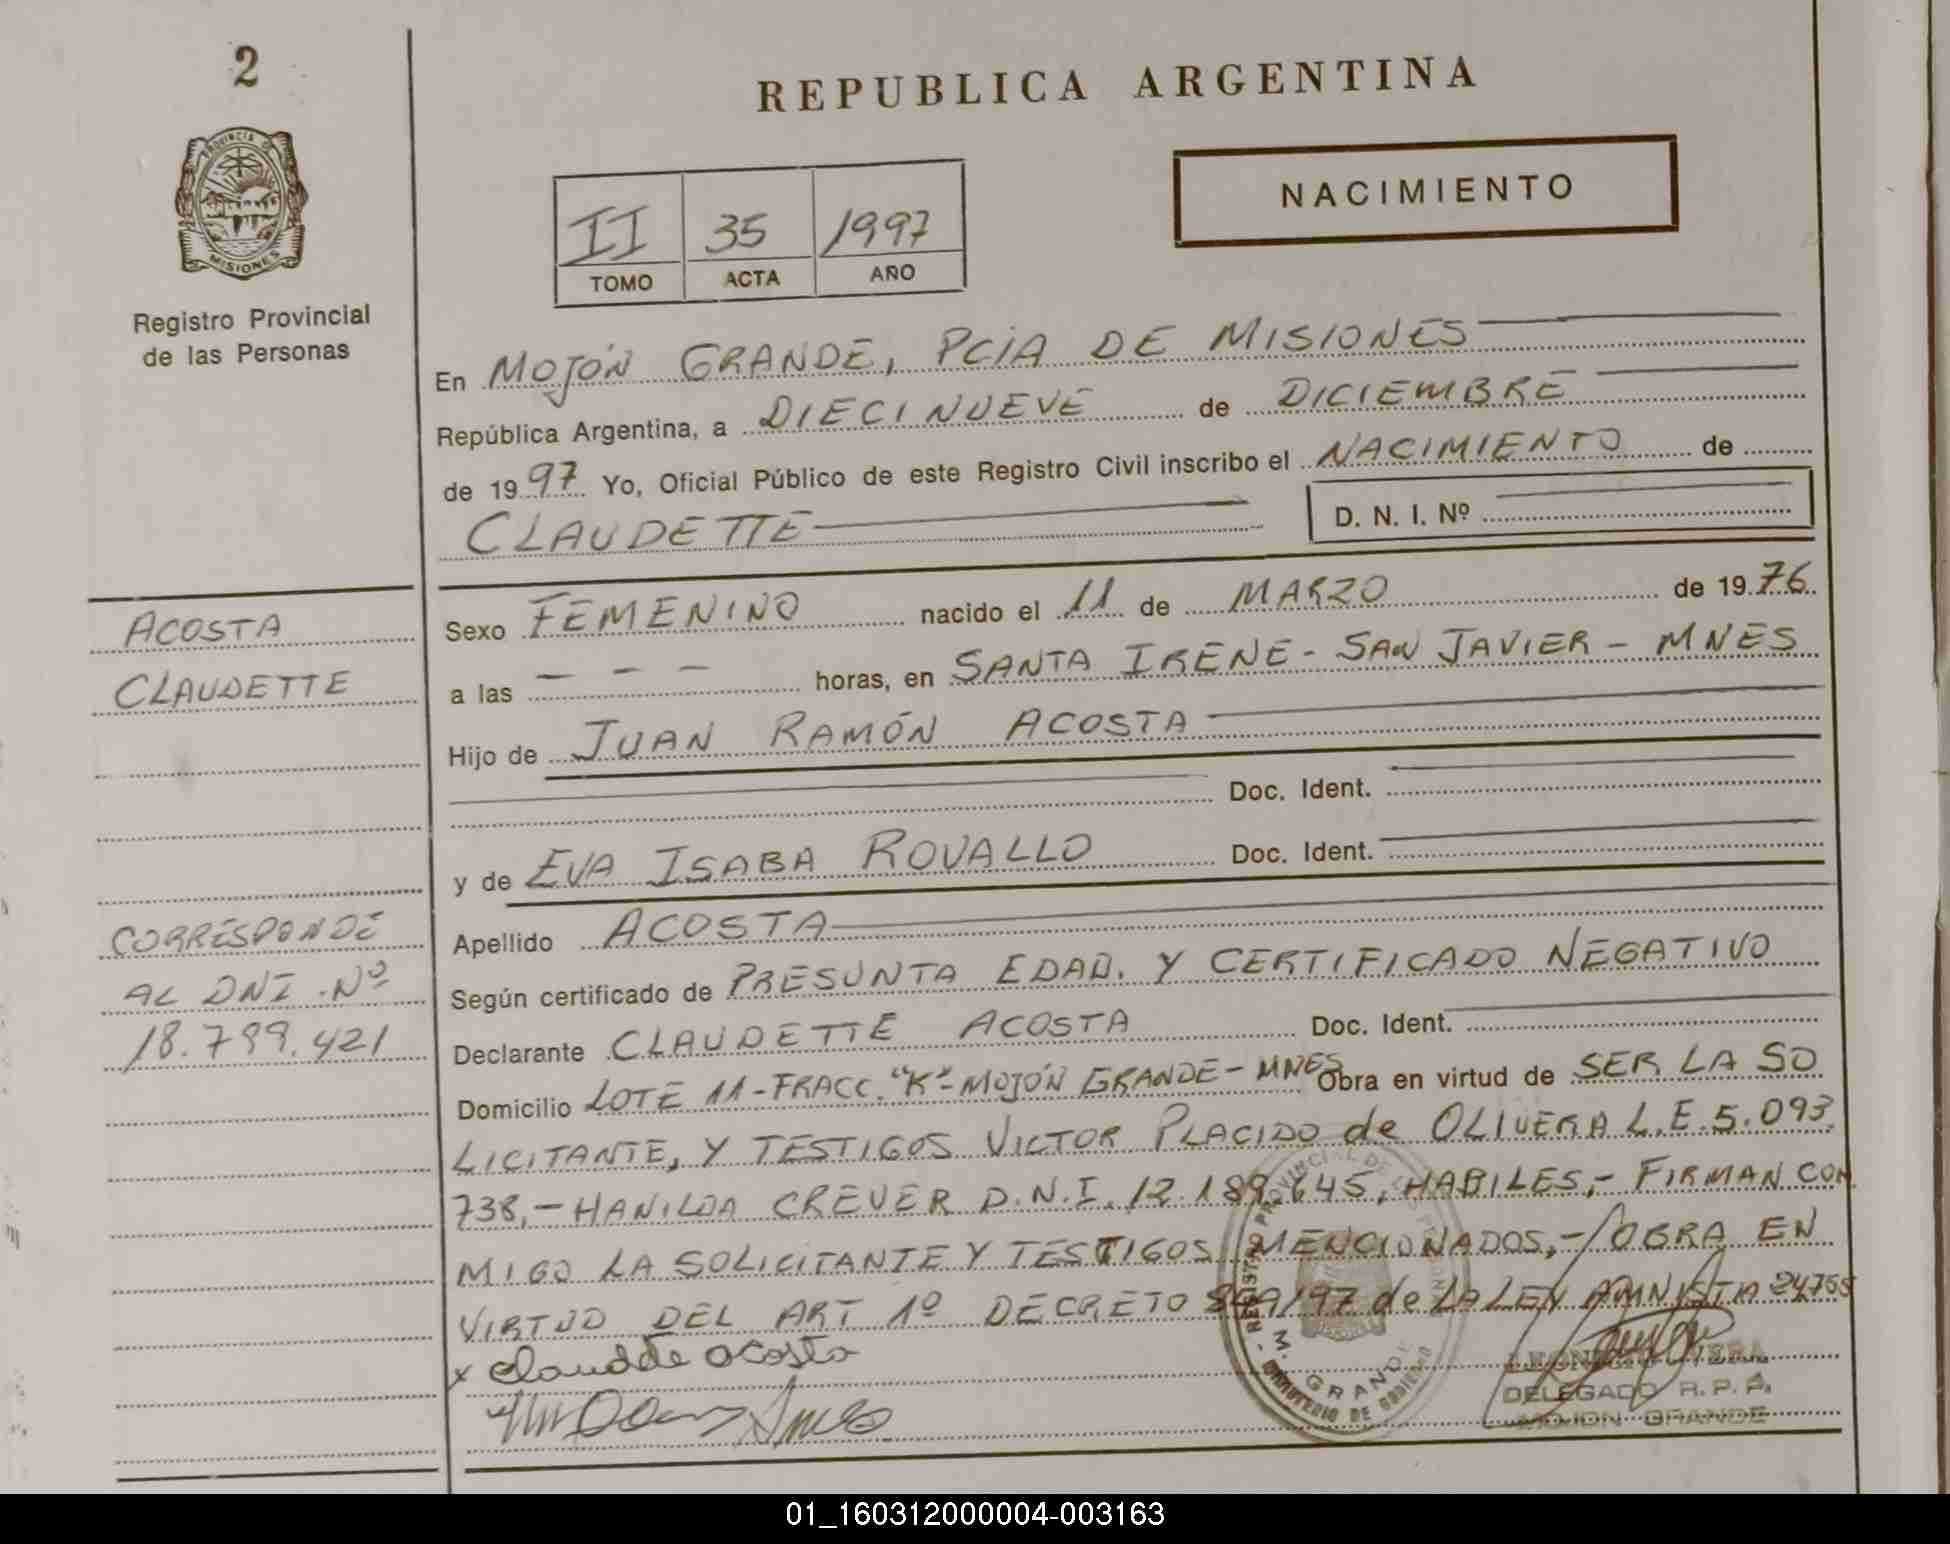 2
REPUBLICA ARGENTINA
PROVINCIA DE
MISIONES
NACIMIENTO
II 35 1997
TOMO ACTA AÑO
Registro Provincial
de las Personas
En MOJÓN GRANDE, PCIA DE MISIONES
República Argentina, a DIECINUEVE de DICIEMBRE
de 1997 Yo, Oficial Público de este Registro Civil inscribo el NACIMIENTO de
CLAUDETTE D. N. I. Nº
ACOSTA
CLAUDETTE
Sexo FEMENINO nacido el 11 de MARZO de 1976
a las - - - horas, en SANTA IRENE - SAN JAVIER - MNES
Hijo de JUAN RAMÓN ACOSTA
Doc. Ident.
y de EVA ISABA ROVALLO Doc. Ident.
CORRESPONDE
AL DNI Nº
18.799.421
Apellido ACOSTA
Según certificado de PRESUNTA EDAD. Y CERTIFICADO NEGATIVO
Declarante CLAUDETTE ACOSTA Doc. Ident.
Domicilio LOTE 11-FRACC. "K"-MOJÓN GRANDE-MNES Obra en virtud de SER LA SO
LICITANTE, Y TESTIGOS VICTOR PLACIDO de OLIVERA L.E. 5.093.
738,- HANILDA CREVER D.N.I. 12.189.645, HABILES,- FIRMAN CON
MIGO LA SOLICITANTE Y TESTIGOS MENCIONADOS,-/OBRA EN
VIRTUD DEL ART 1º DECRETO 849/97 de LA LEY AMNISTIA 24755
x Claudete acosta
REGISTRO PROVINCIAL DE LAS PERSONAS
M. GRANDE
MINISTERIO DE GOBIERNO
DELEGADO R. P. P.
MOJON GRANDE
01_160312000004-003163